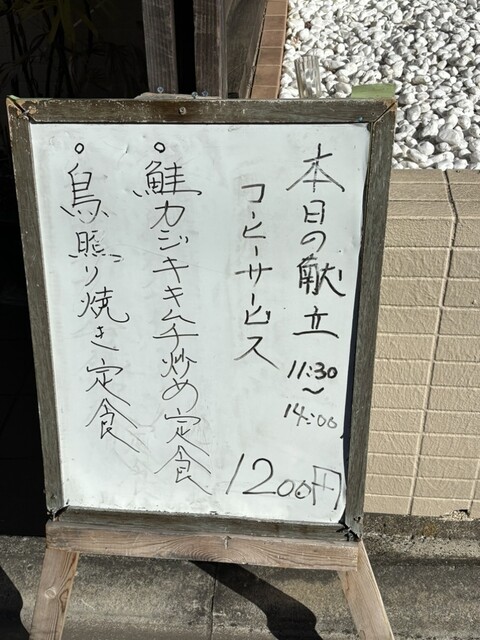 本日の献立 11:30〜14:00
コーヒーサービス
1200円
○鮭カジキキムチ炒め定食
○鳥照り焼き定食